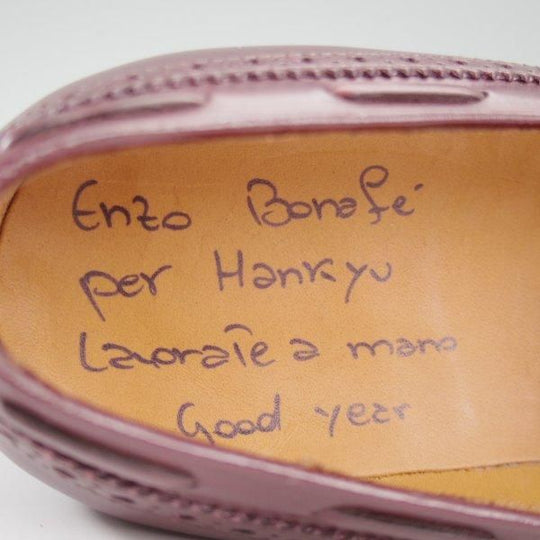 Enzo Bonafé
per Hankyu
Lavorate a mano
Good year